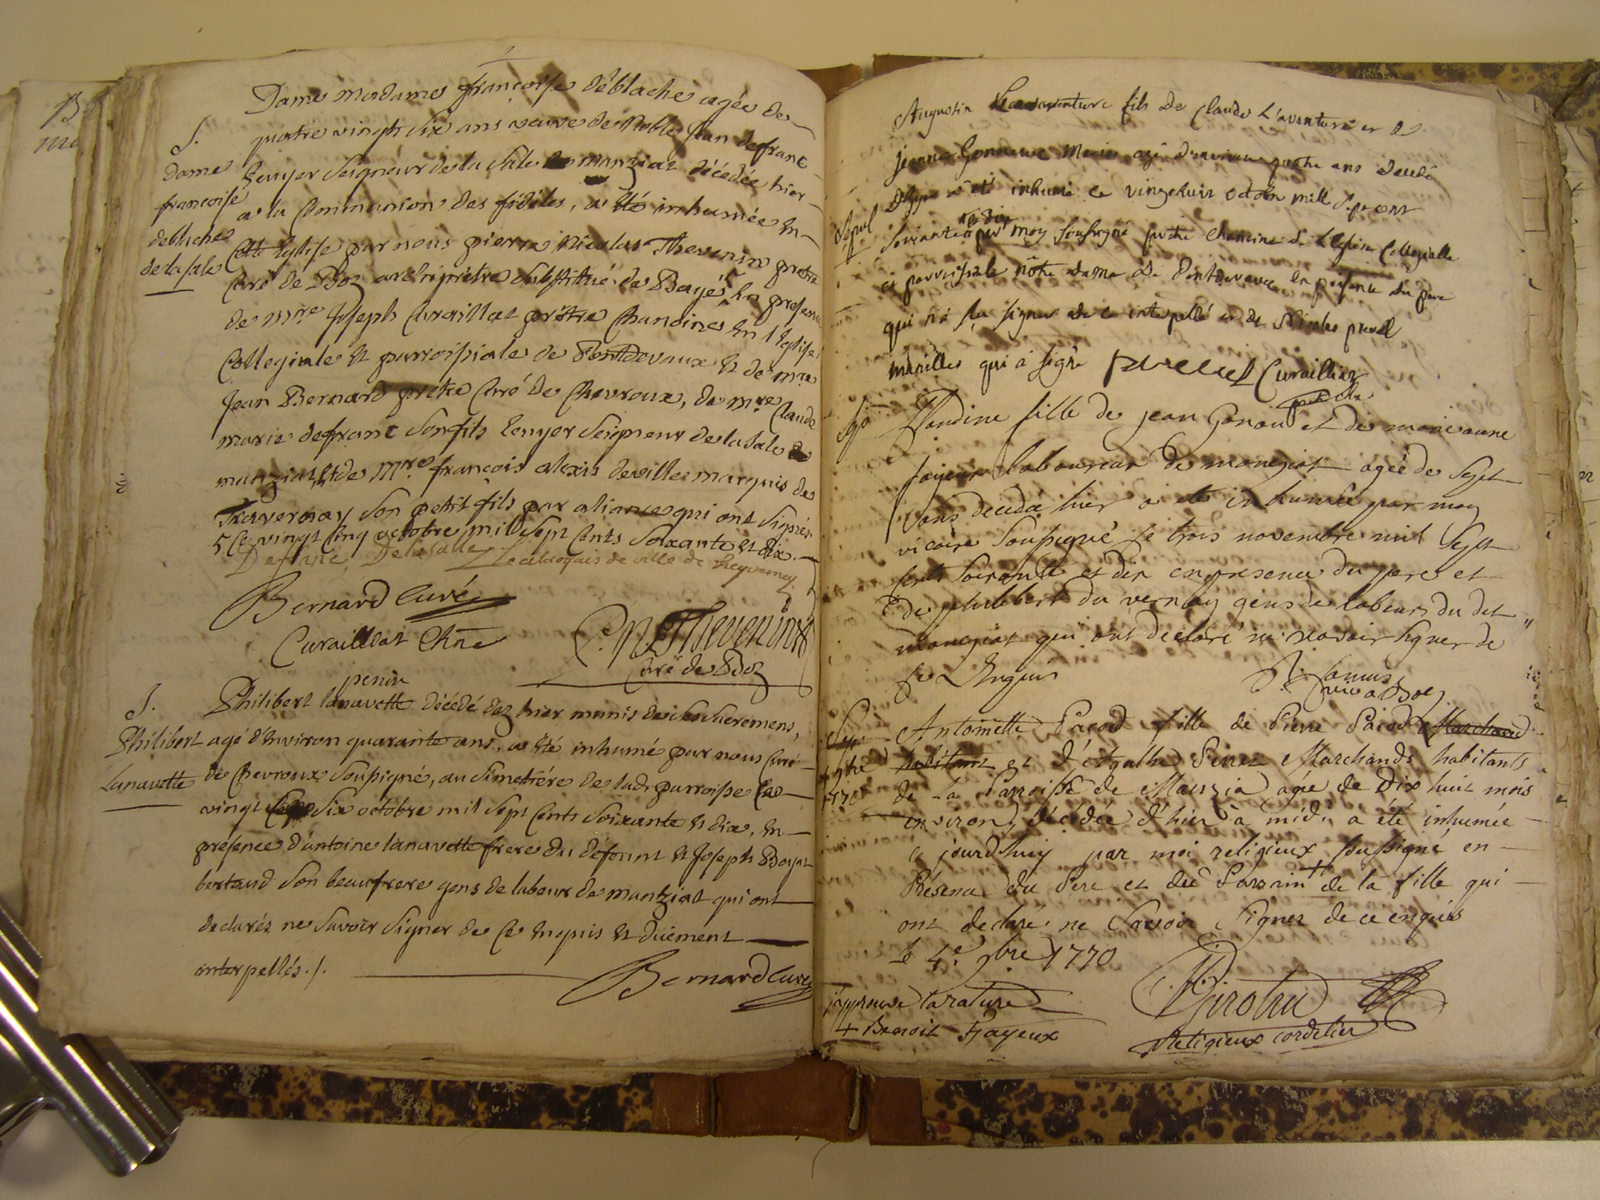 Dame madame françoise deblache agée de
quatre vingt six ans veuve de Noble Jean defranc
Ecuyer Seigneur de la Sale de manziat décédée hier
a la Communion des fidèles, a été inhumée en
Cette Eglise par nous pierre nicolas Thevenin pretre
Curé de Boz archipretre substitué de Bagé en presence
de mre Joseph Curaillat prêtre Chanoine en l'Eglise
Collegiale et parroissiale de Pontdevaux et de mre
Jean Bernard prêtre Curé de Chevroux, de mre Claude
marie defranc son fils Ecuyer Seigneur de la Sale de
manziat et de mre françois alexis deville marquis de
Travernay son petit fils par aliance qui ont signés
Ce vingt Cinq octobre mil sept Cents soixante et dix.
Defranc Delasalle Le marquis de ville de Traverney
Bernard Curé
Curaillat Chne
P. N. Thevenin
Curé de Boz
S.
dame
francoise
deblache
de la sale
S.
Philibert
Lanavette
penin
Philibert lanavette décédé dez hier munis des sacremens,
agé d'environ quarante ans, a été inhumé par nous Curé
de Chevroux soussigné, au simetière de ladt parroisse Ce
vingt six octobre mil sept Cents soixante et dix, en
presence d'antoine lanavette frere du défunt et Joseph Boyat
bertaud son beaufrere gens de labeur de manziat qui ont
declarés ne savoir signer de Ce enquis et duëment
interpellés ./.
Bernard Curé
Augustin Lavanture fils de Claude L'avanture et de
jeanne Gonneau Marier agé d'environ quatre ans decedé
a été inhumé ce vingthuit octobre mill sept cent
soixante et dix par moy soussigné pretre chanoine de L'eglise Collegialle
et parroissiale nôtre dame de pontdevaux en presence du pere
qui n'a scu signer de ce interpellé et de Nicolas
marillier qui a signé Curaillat
pretre Chne
Claudine fille de jean Gonou et de marie anne
fayeux laboureur de manziat agée de sept
ans decedée hier a eté inhumée par moy
vicaire soussigné le trois novembre mil sept
cents soixante et dix en presence du pere et
de philibert du vernay gens de labeur du dit
manziat qui ont declaré ne scavoir signer de
ce Enquis
vic. a Boz
Antoinette Pacod fille de Pierre Pacod Marchand
habitant et d'Agathe Perret Marchands habitants
de La Paroisse de Manzia agée de Dix huit mois
environ, décédée d'hier à midi a été inhumée
aujourd'huy par moi religieux soussigné en
Présence du Pere et du Parain+ de la fille qui
ont declaré ne Scavoir Signer de ce enquis
le 4e 9bre 1770
japprouve la rature
+ Benoit Fayeux
Religieux cordelier